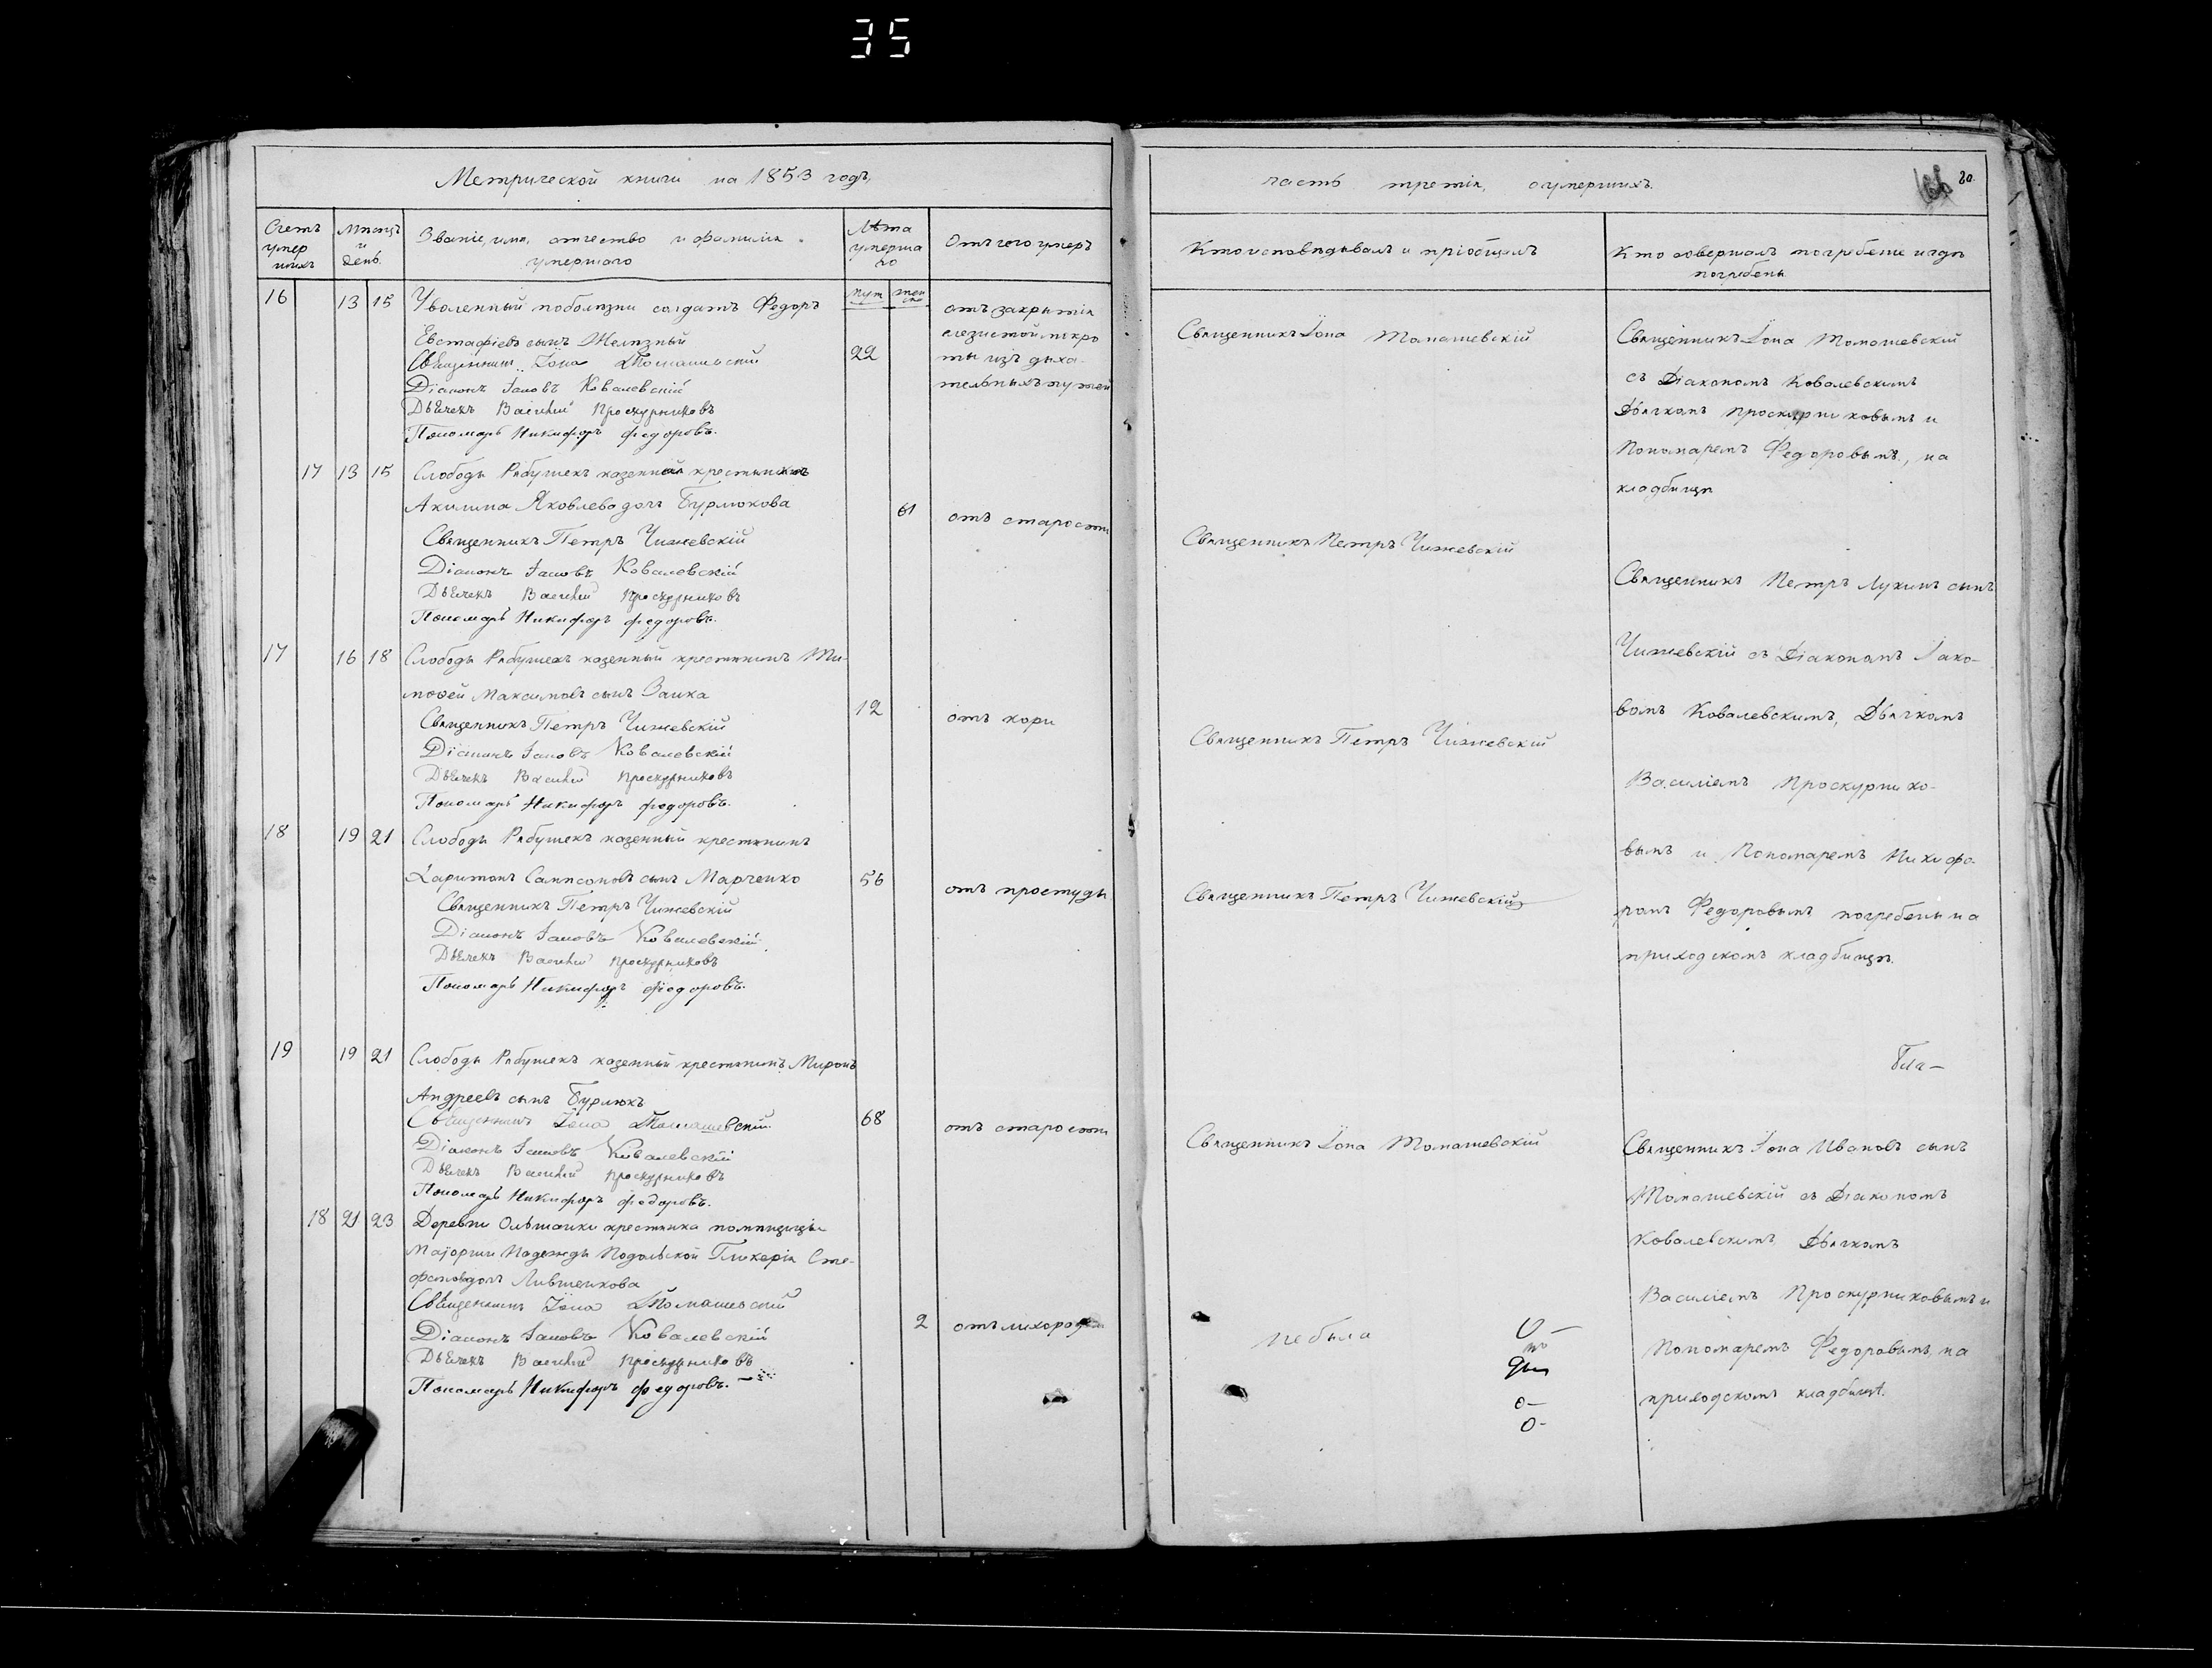 35
Метрической книги на 1853 годъ,
Счетъ умер шихъ
Мѣсяцъ и день.
Званіе, имя, отчество и фамилія умершаго
Лѣта умерша го
муж жен ска
Отъ чего умеръ
16 13 15 Уволенный поболѣзни солдатъ Федоръ
Евстафіевъ сынъ Желѣзный
22
отъ закрытія
слезистой мокро
ты изъ дыха-
тельныхъ путей
Священникъ Іона Томашевскій
Діаконъ Іаковъ Ковалевскій
Дьячекъ Василій Проскурниковъ
Пономарь Никифоръ Федоровъ.
17 13 15 Слободы Рябушекъ казенная крестьянка
Акилина Яковлева дочь Бурлюкова
61 отъ старости
Священникъ Петръ Чижевскій
Діаконъ Іаковъ Ковалевскій
Дьячекъ Василій Проскурниковъ
Пономарь Никифоръ Федоровъ.
17 16 18 Слободы Рябушекъ казенный крестьянинъ Ти-
мофей Максимовъ сынъ Заика
12 отъ кори
Священникъ Петръ Чижевскій
Діаконъ Іаковъ Ковалевскій
Дьячекъ Василій Проскурниковъ
Пономарь Никифоръ Федоровъ.
18 19 21 Слободы Рябушекъ казенный крестьянинъ
Харитонъ Сампсоновъ сынъ Марченко
56 отъ простуды
Священникъ Петръ Чижевскій
Діаконъ Іаковъ Ковалевскій
Дьячекъ Василій Проскурниковъ
Пономарь Никифоръ Федоровъ.
19 19 21 Слободы Рябушекъ казенный крестьянинъ Миронъ
Андреевъ сынъ Бурлюкъ
68 отъ старости
Священникъ Іона Томашевскій
Діаконъ Іаковъ Ковалевскій
Дьячекъ Василій Проскурниковъ
Пономарь Никифоръ Федоровъ.
18 21 23 Деревни Ольшанки крестьянка помѣщицы
Маіорши Надежды Подольской Гликерія Сте-
фанова дочь Лившенкова
2 отъ лихорадки
Священникъ Іона Томашевскій
Діаконъ Іаковъ Ковалевскій
Дьячекъ Василій Проскурниковъ
Пономарь Никифоръ Федоровъ.
часть третія, о умершихъ.
166 80.
Кто исповѣдывалъ и пріобщалъ
Кто совершалъ погребеніе и гдѣ погребены
Священникъ Іона Томашевскій
Священникъ Петръ Чижевскій
Священникъ Петръ Чижевскій
Священникъ Петръ Чижевскій
Священникъ Іона Томашевскій
не была
Священникъ Іона Томашевскій
съ Діакономъ Ковалевскимъ
Дьячкомъ Проскурниковымъ и
Пономаремъ Федоровымъ, на
кладбищѣ
Священникъ Петръ Лукинъ сынъ
Чижевскій съ Діакономъ Іако-
вомъ Ковалевскимъ, Дьячкомъ
Василіемъ Проскурнико-
вымъ и Пономаремъ Никифо-
ромъ Федоровымъ погребены на
приходскомъ кладбищѣ.
Священникъ Іона Ивановъ сынъ
Томашевскій съ Діакономъ
Ковалевскимъ Дьячкомъ
Василіемъ Проскурниковымъ и
Пономаремъ Федоровымъ, на
приходскомъ кладбищѣ.